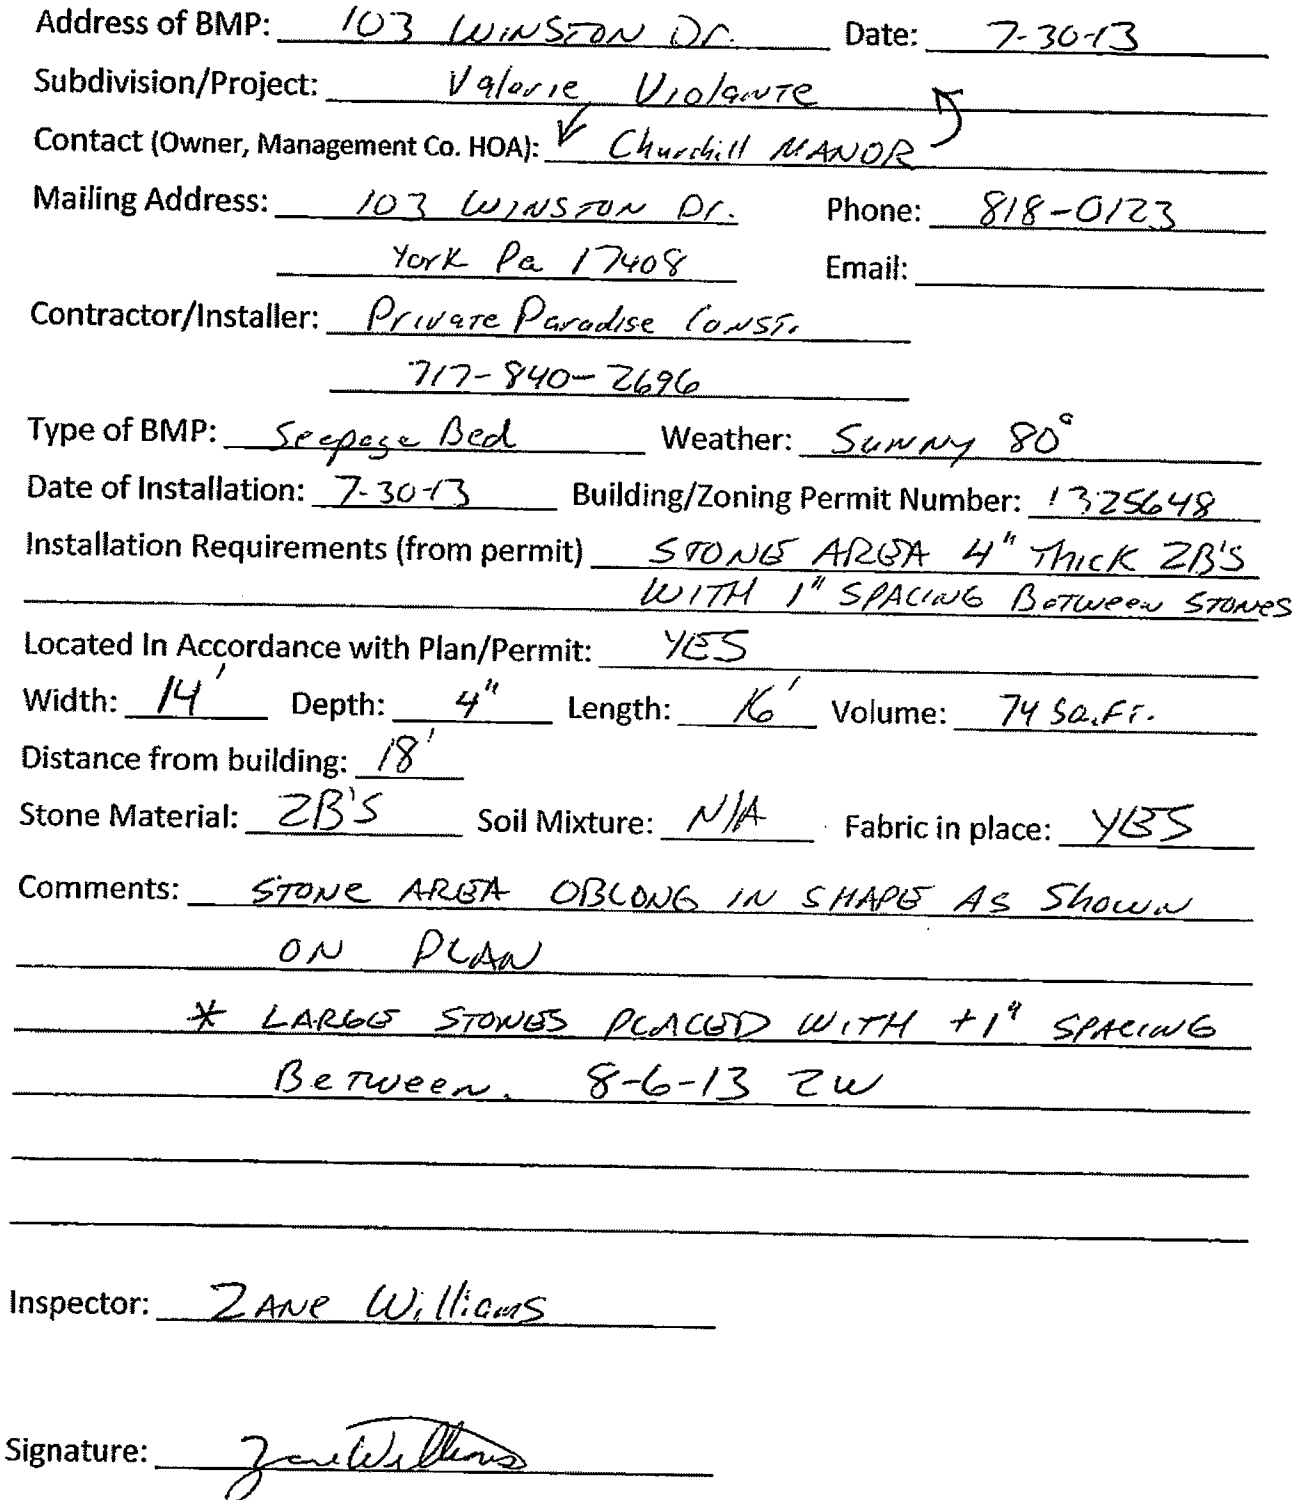 Address of BMP: 103 WINSTON Dr. Date: 7-30-13
Subdivision/Project: Valorie Violante
Contact (Owner, Management Co. HOA): Churchill MANOR
Mailing Address: 103 WINSTON Dr. Phone: 818-0123
York Pa 17408 Email:
Contractor/Installer: Private Paradise Const.
717-840-2696
Type of BMP: Seepage Bed Weather: Sunny 80°
Date of Installation: 7-30-13 Building/Zoning Permit Number: 1325648
Installation Requirements (from permit) STONE AREA 4" Thick 2B'S
WITH 1" SPACING BeTWeen STONES
Located In Accordance with Plan/Permit: YES
Width: 14' Depth: 4" Length: 16' Volume: 74 SQ.FT.
Distance from building: 18'
Stone Material: 2B'S Soil Mixture: N/A Fabric in place: YES
Comments: STONE AREA OBLONG IN SHAPE AS Shown
ON PLAN
* LARGE STONES PLACED WITH +1" SPACING
BeTween. 8-6-13 ZW
Inspector: ZANE Williams
Signature: Zane Williams